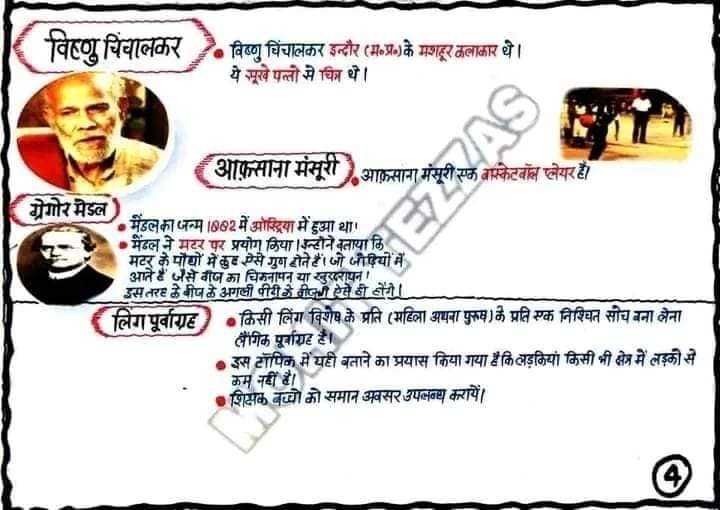 विष्णु चिंचालकर
• विष्णु चिंचालकर इन्दौर (म०प्र०) के मशहूर कलाकार थे।
ये सूखे पत्तो से चित्र थे।
आफ़साना मंसूरी
• आफ़साना मंसूरी एक बास्केटबॉल प्लेयर हैं।
ग्रेगोर मेंडल
• मेंडल का जन्म 1882 में ऑस्ट्रिया में हुआ था।
• मेंडल ने मटर पर प्रयोग किया। इन्होने बताया कि
मटर के पौधों में कुछ ऐसे गुण होते हैं। जो जोड़ियों में
आते हैं जैसे बीज का चिकनापन या खुरदरापन।
इस तरह के बीज के अगली पीढ़ी के बीज भी ऐसे ही होंगे।
लिंग पूर्वाग्रह
• किसी लिंग विशेष के प्रति (महिला अथवा पुरूष) के प्रति एक निश्चित सोच बना लेना
लैंगिक पूर्वाग्रह है।
• इस टॉपिक में यही बताने का प्रयास किया गया है कि लड़कियां किसी भी क्षेत्र में लड़को से
कम नहीं हैं।
• शिक्षक बच्चो को समान अवसर उपलब्ध करायें।
4